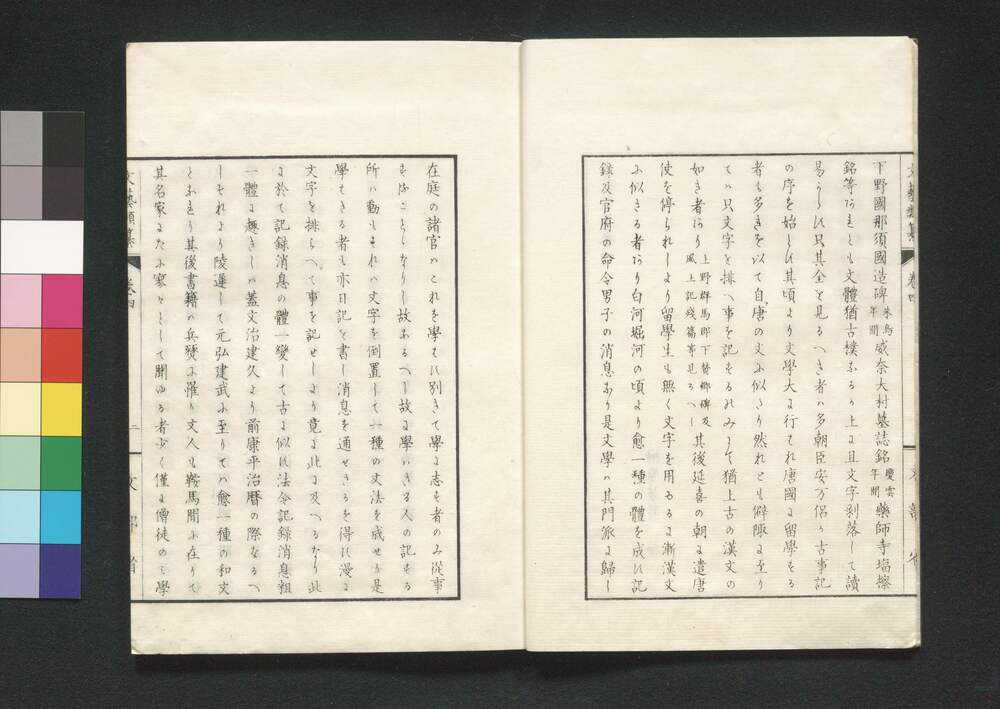 文藝類纂 卷四 文部省
下野國那須國造碑朱鳥年間威奈大村墓誌銘慶雲年間藥師寺塔擦
銘等アれとも文體猶古樸なるか上に且文字剥落して讀
易からす只其全を見るへき者ハ多朝臣安万侶か古事記
の序を始とす其頃より文學大に行はれ唐國に留學する
者も多きを以て自唐の文に似たり然れとも僻陬に至り
てハ只文字を排へ事を記するのみにて猶上古の漢文の
如き者あり上野群馬郡下賛郷碑及風土記殘篇等見るへし其後延喜の朝に遣唐
使を停られしより留學生も無く文字を用るに漸漢文
に似さる者あり白河堀河の頃より愈一種の體を成す記
録及官府の命令男子の消息なり是文學ハ其門派に歸し
在庭の諸官ハこれを學はす別きて學に志す者のみ從事
することとなりし故なるへし故に學ハさる人の記する
所ハ動もすれハ文字を倒置して一種の文法を成せり是
學はさる者も亦日記を書し消息を通せさるを得す漫に
文字を排らへて事を記せしより竟に此に及へるなり此
に於て記録消息の體一變して古に似す法令記録消息粗
一體に趣きしハ蓋文治建久より前康平治暦の際なるへ
しそれより陵遲して元弘建武に至りてハ愈一種の和文
となれり其後書籍の兵燹に罹り文人も鞍馬間に在りて
其名家はたに寥々として聞ゆる者少く僅に僧徒のミ學
文藝類纂 卷四 二 文部省